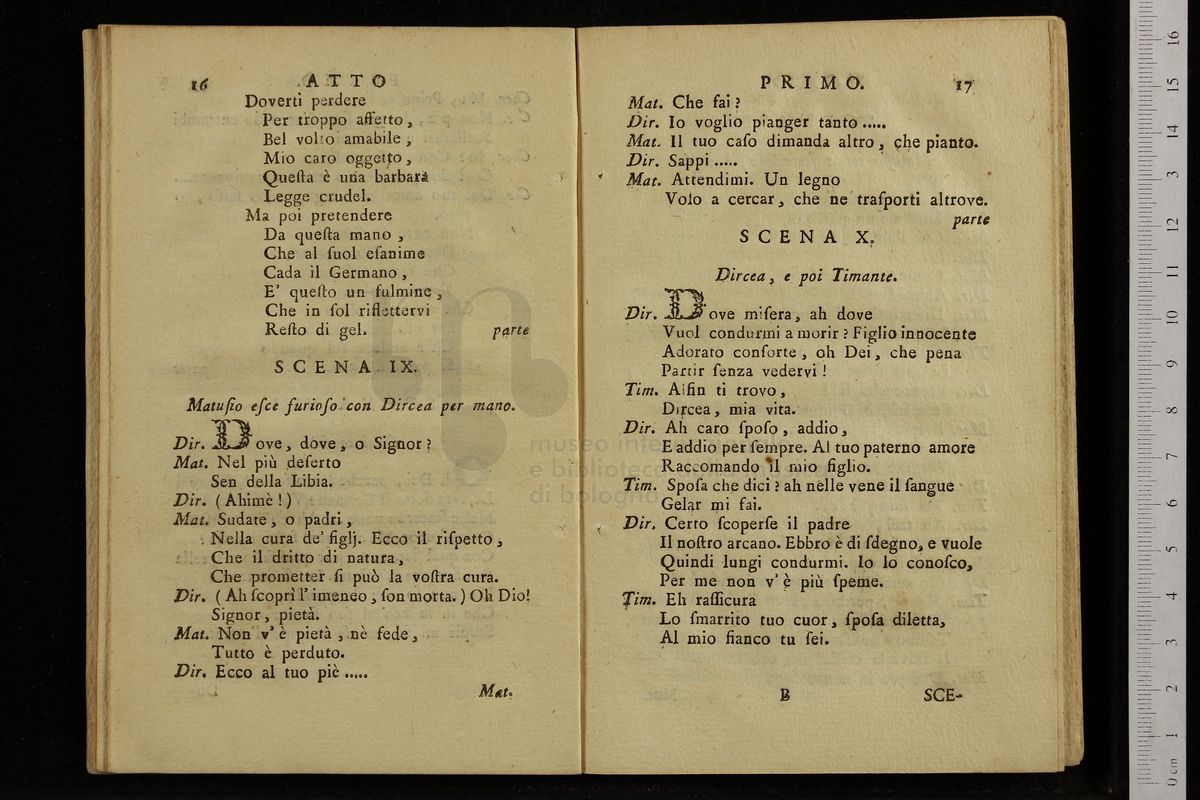 16 ATTO
Doverti perdere
Per troppo affetto,
Bel volto amabile,
Mio caro oggetto,
Queſta è una barbara
Legge crudel.
Ma poi pretendere
Da queſta mano,
Che al ſuol eſanime
Cada il Germano,
E' queſto un fulmine,
Che in ſol riflettervi
Reſto di gel. parte
SCENA IX.
Matuſio eſce furioſo con Dircea per mano.
Dir. Dove, dove, o Signor?
Mat. Nel più deſerto
Sen della Libia.
Dir. (Ahimè!)
Mat. Sudate, o padri,
Nella cura de' figlj. Ecco il riſpetto,
Che il dritto di natura,
Che prometter ſi può la voſtra cura.
Dir. (Ah ſcoprì l'imeneo, ſon morta.) Oh Dio!
Signor, pietà.
Mat. Non v'è pietà, nè fede,
Tutto è perduto.
Dir. Ecco al tuo piè .....
Mat.
PRIMO. 17
Mat. Che fai?
Dir. Io voglio pianger tanto .....
Mat. Il tuo caſo dimanda altro, che pianto.
Dir. Sappi .....
Mat. Attendimi. Un legno
Volo a cercar, che ne traſporti altrove.
parte
SCENA X.
Dircea, e poi Timante.
Dir. Dove miſera, ah dove
Vuol condurmi a morir? Figlio innocente
Adorato conſorte, oh Dei, che pena
Partir ſenza vedervi!
Tim. Alfin ti trovo,
Dircea, mia vita.
Dir. Ah caro ſpoſo, addio,
E addio per ſempre. Al tuo paterno amore
Raccomando il mio figlio.
Tim. Spoſa che dici? ah nelle vene il ſangue
Gelar mi fai.
Dir. Certo ſcoperſe il padre
Il noſtro arcano. Ebbro è di ſdegno, e vuole
Quindi lungi condurmi. Io lo conoſco,
Per me non v'è più ſpeme.
Tim. Eh raſſicura
Lo ſmarrito tuo cuor, ſpoſa diletta,
Al mio fianco tu ſei.
B SCE-
museo
e biblioteca
di bologna
0 cm 1 2 3 4 5 6 7 8 9 10 11 12 13 14 15 16